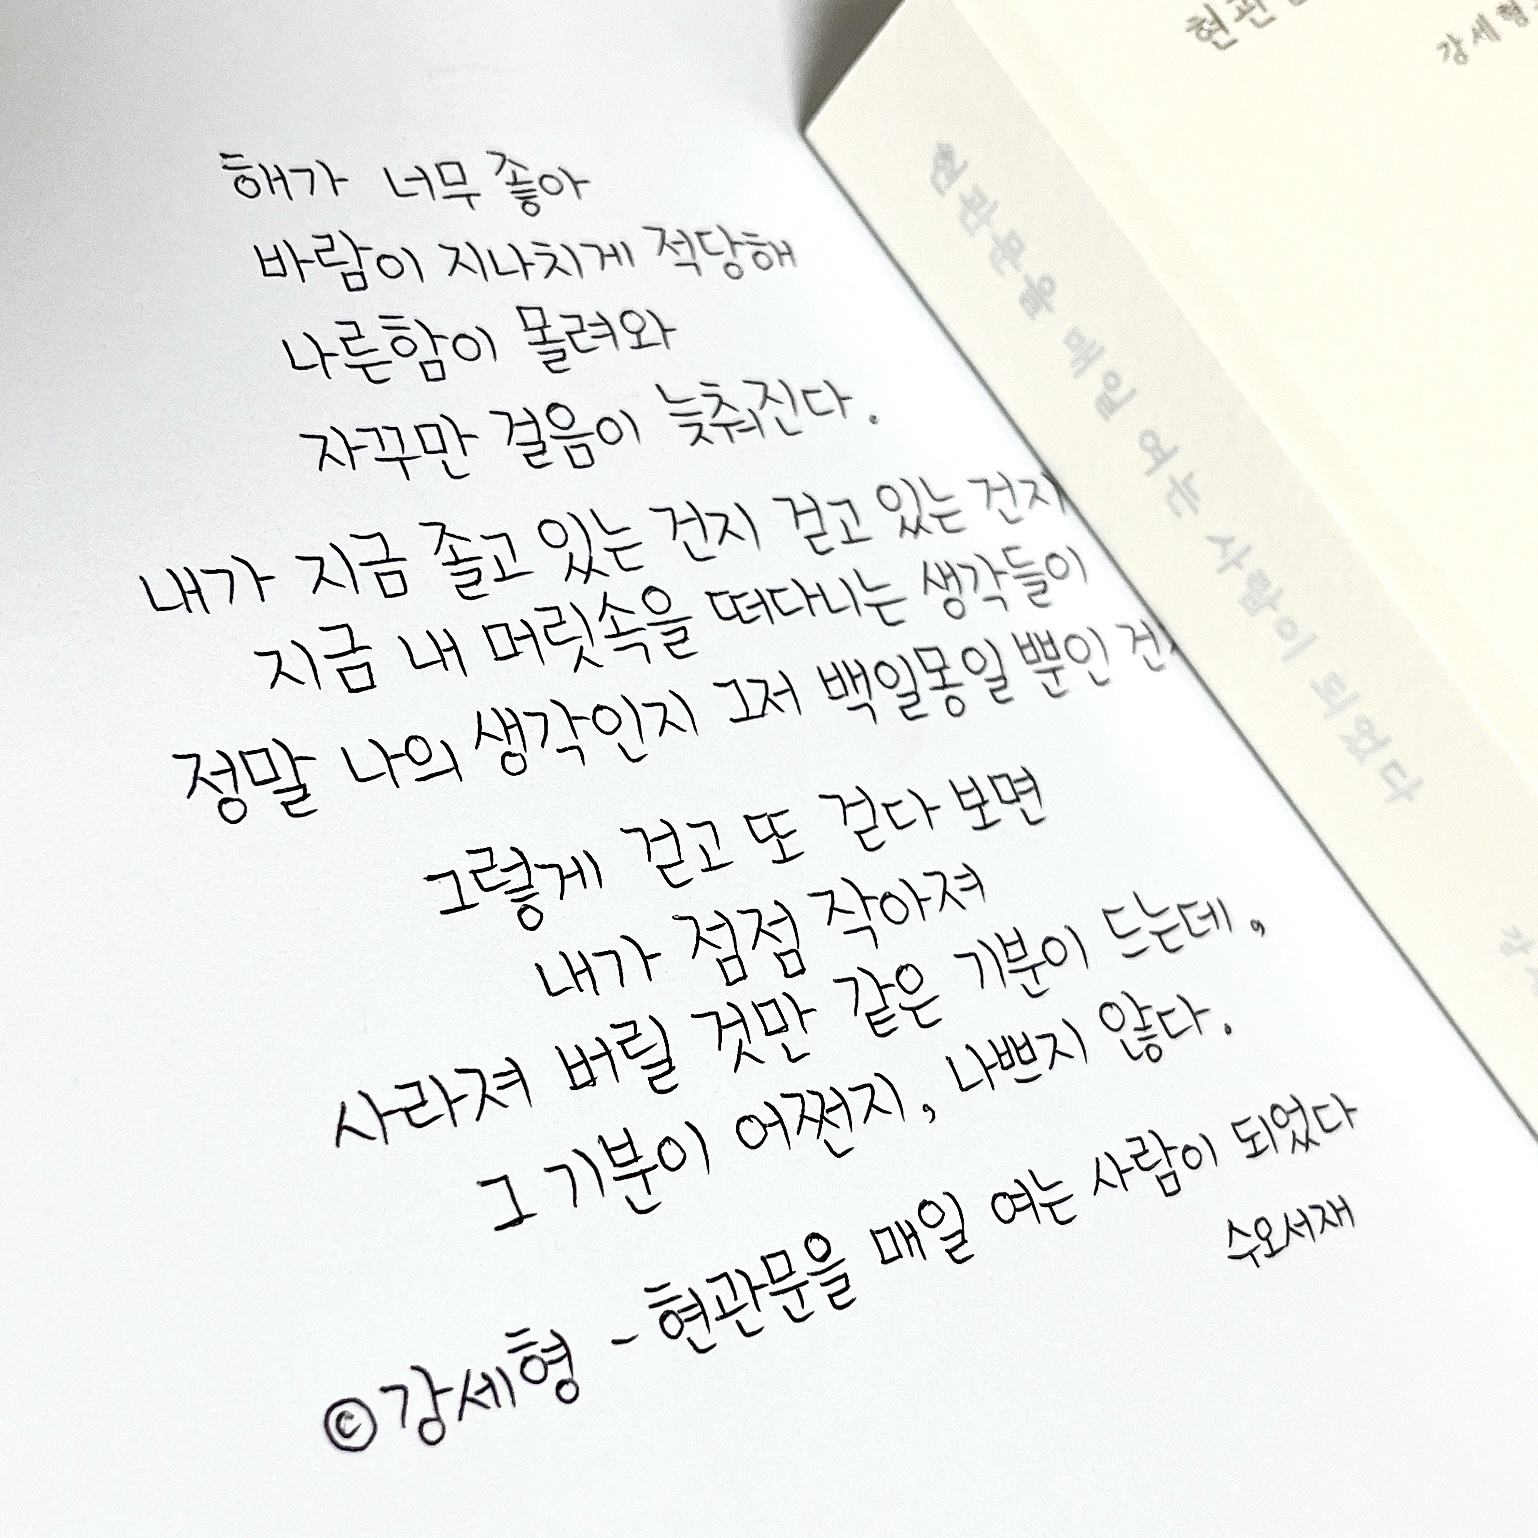 해가 너무 좋아
바람이 지나치게 적당해
나른함이 몰려와
자꾸만 걸음이 늦춰진다.
내가 지금 졸고 있는 건지 걷고 있는 건지
지금 내 머릿속을 떠다니는 생각들이
정말 나의 생각인지 그저 백일몽일 뿐인 건
그렇게 걷고 또 걷다 보면
내가 점점 작아져
사라져 버릴 것만 같은 기분이 드는데,
그 기분이 어쩐지, 나쁘지 않다.
©강세형 - 현관문을 매일 여는 사람이 되었다
수오서재
현관
강세형
현관문을 매일 여는 사람이 되었다